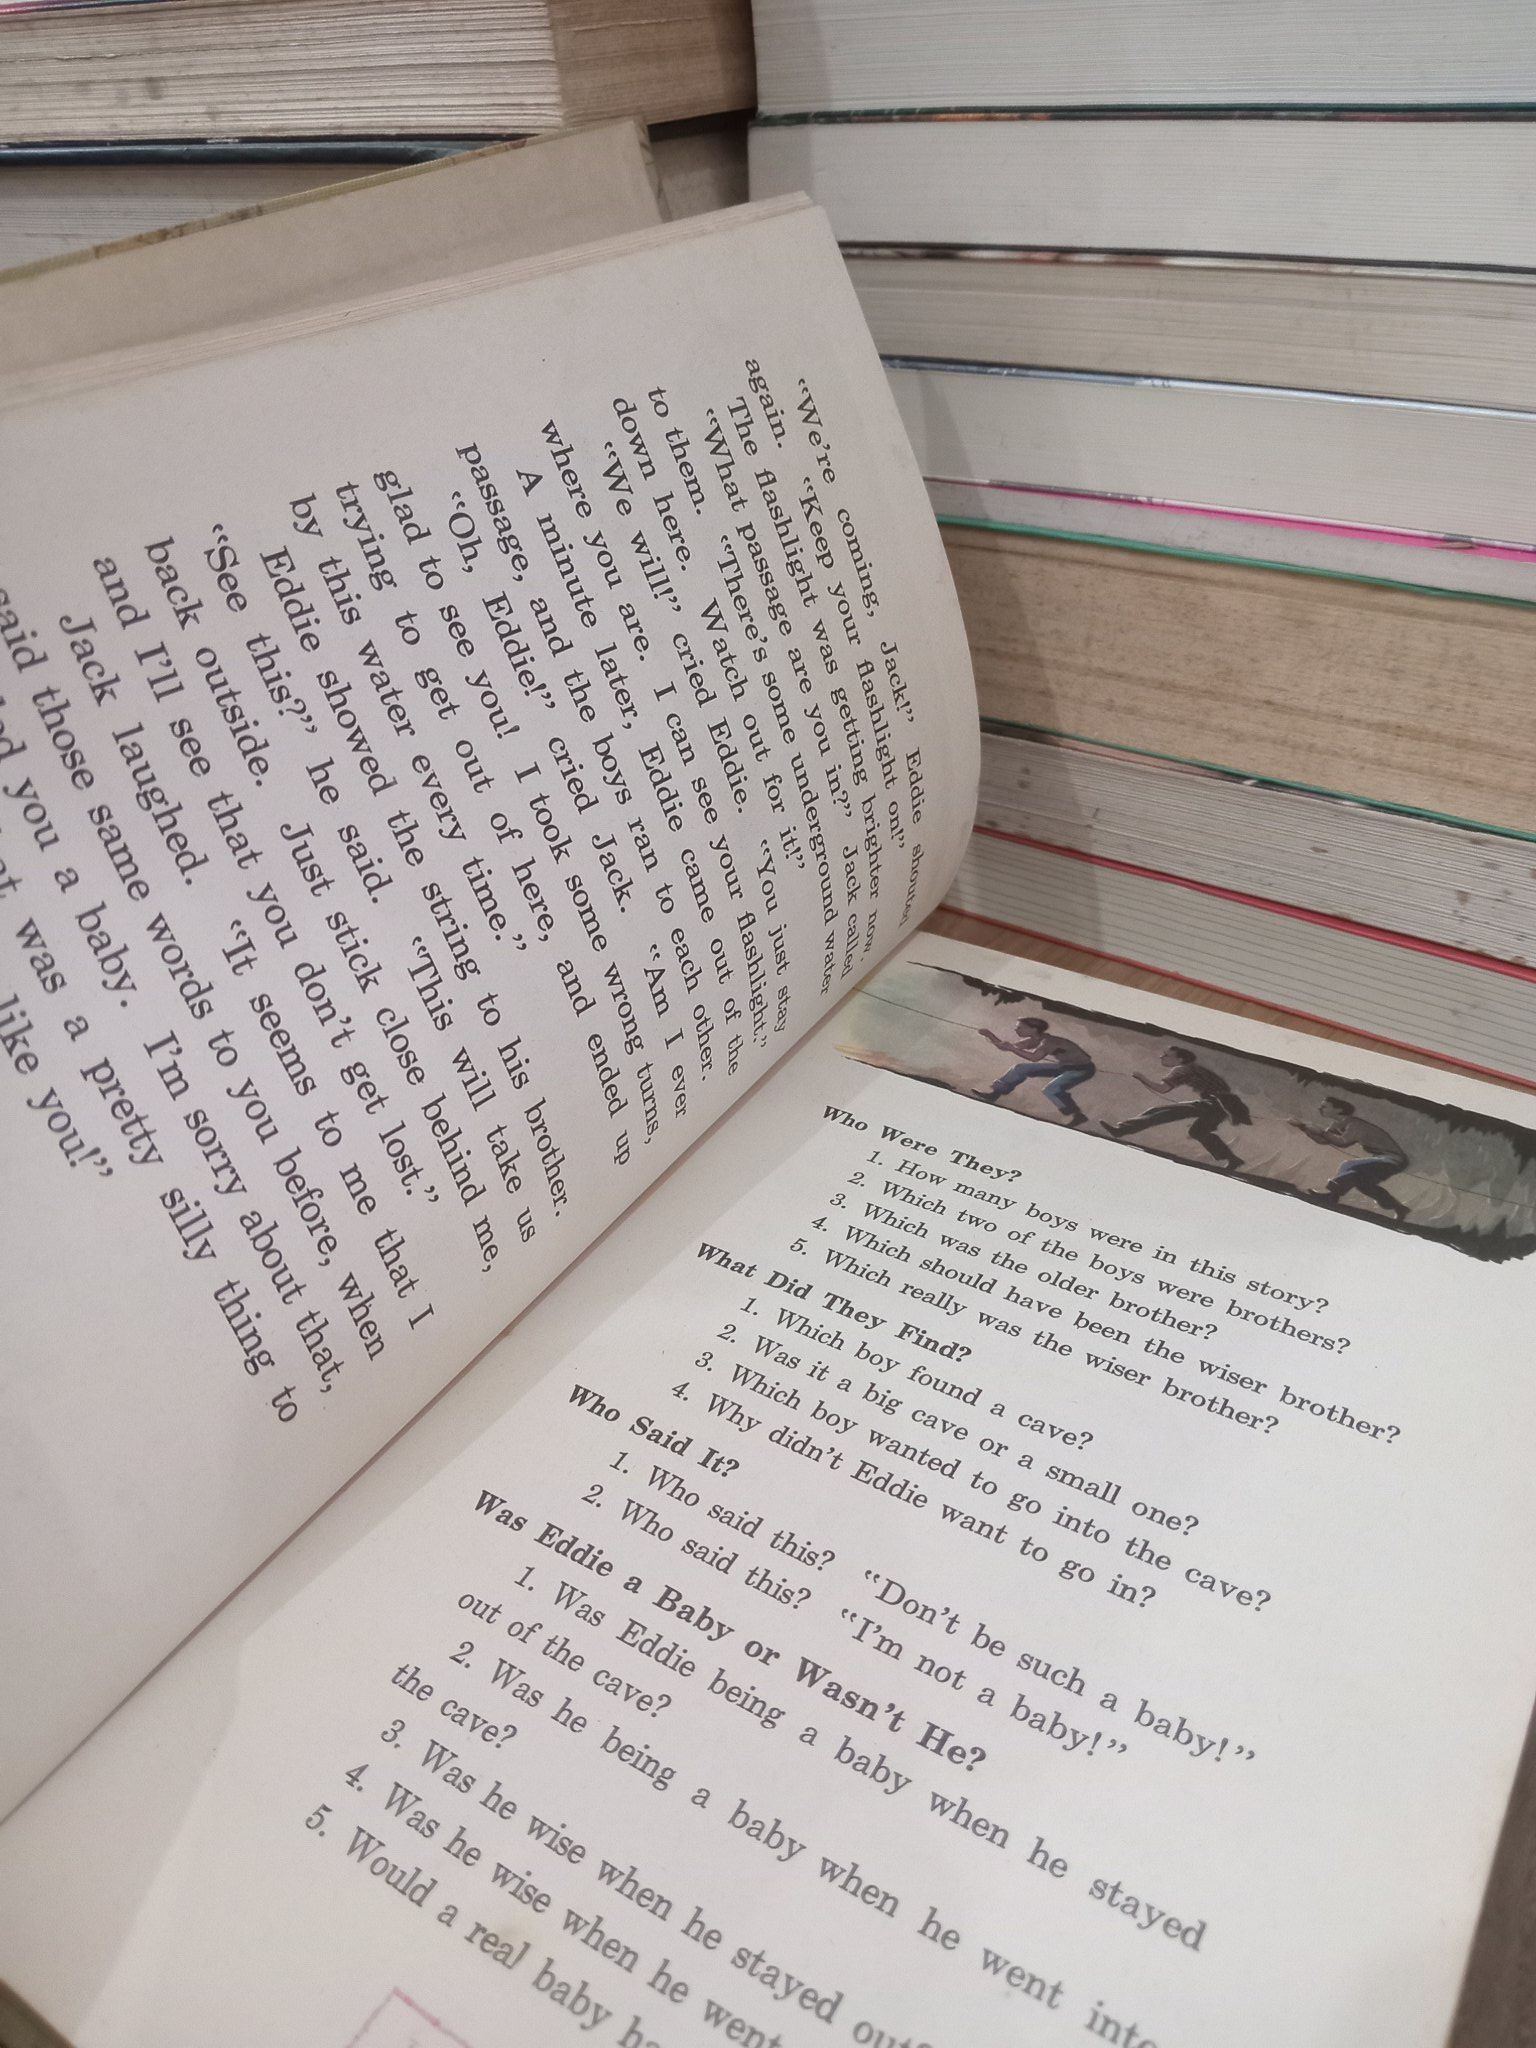 "We're coming, Jack!" Eddie shouted
again. "Keep your flashlight on!"
The flashlight was getting brighter now.
"What passage are you in?" Jack called
to them. "There's some underground water
down here. Watch out for it!"
"We will!" cried Eddie. "You just stay
where you are. I can see your flashlight."
A minute later, Eddie came out of the
passage, and the boys ran to each other.
"Oh, Eddie!" cried Jack. "Am I ever
glad to see you! I took some wrong turns,
trying to get out of here, and ended up
by this water every time."
Eddie showed the string to his brother.
"See this?" he said. "This will take us
back outside. Just stick close behind me,
and I'll see that you don't get lost."
Jack laughed. "It seems to me that I
said those same words to you before, when
you a baby. I'm sorry about that,
was a pretty silly thing to
like you!"
Who Were They?
1. How many boys were in this story?
2. Which two of the boys were brothers?
3. Which was the older brother?
4. Which should have been the wiser brother?
5. Which really was the wiser brother?
What Did They Find?
1. Which boy found a cave?
2. Was it a big cave or a small one?
3. Which boy wanted to go into the cave?
4. Why didn't Eddie want to go in?
Who Said It?
1. Who said this? "Don't be such a baby!"
2. Who said this? "I'm not a baby!"
Was Eddie a Baby or Wasn't He?
1. Was Eddie being a baby when he stayed
out of the cave?
2. Was he being a baby when he went into
the cave?
3. Was he wise when he stayed out?
4. Was he wise when he went
5. Would a real baby